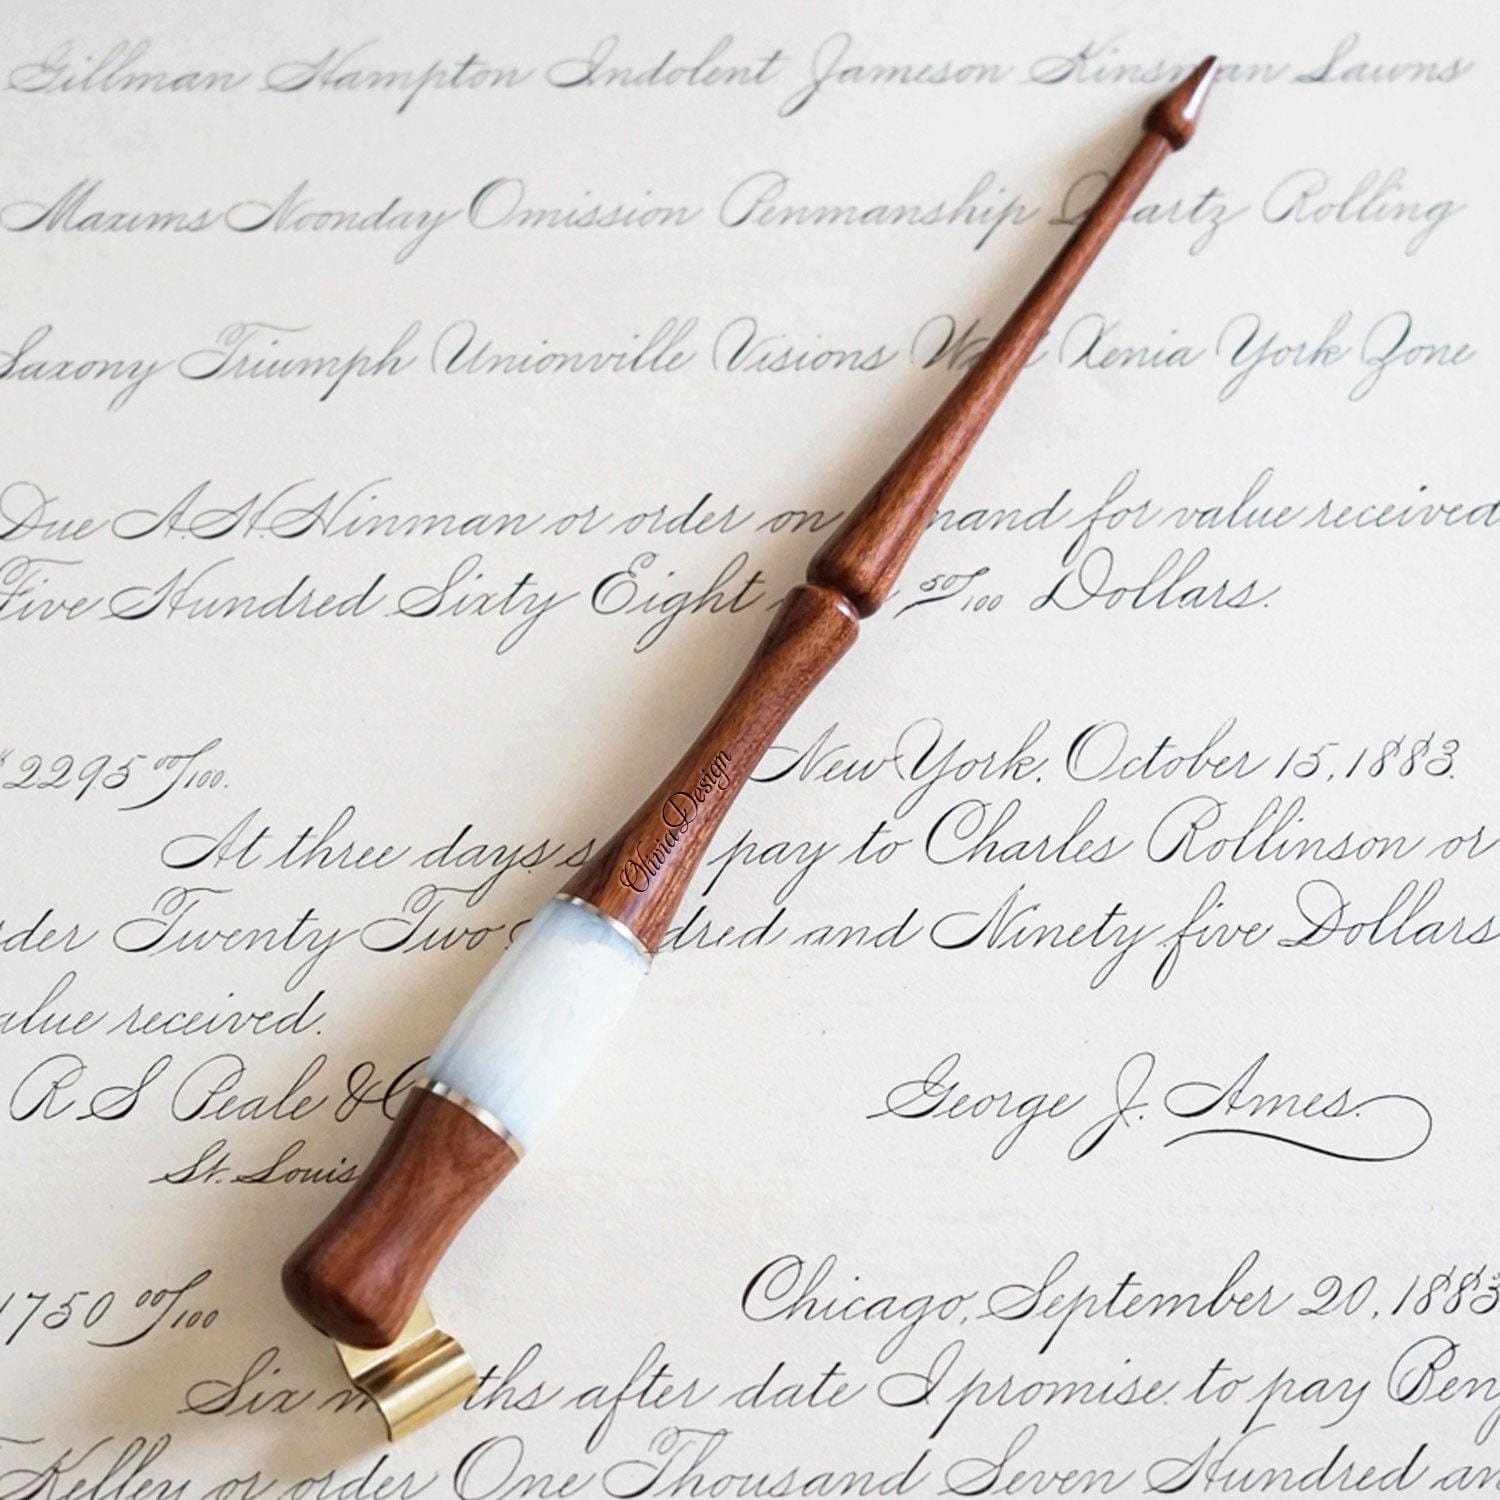 Gillman Hampton Indolent Jameson Kinsman Lawns
Maxims Noonday Omission Penmanship Quartz Rolling
Saxony Triumph Unionville Visions Xenia York Zone
Due A.H. Hinman or order on mand for value received
Five Hundred Sixty Eight 50/100 Dollars.
$2295 00/100.
New York. October 15, 1883.
At three days s pay to Charles Rollinson or
rder Twenty Two dred and Ninety five Dollars
alue received.
R S Peale & C
George J. Ames.
St. Louis
OliviaDesign
1750 00/100
Chicago, September 20, 1883
Six m ths after date I promise to pay Benj
Kelley or order One Thousand Seven Hundred an